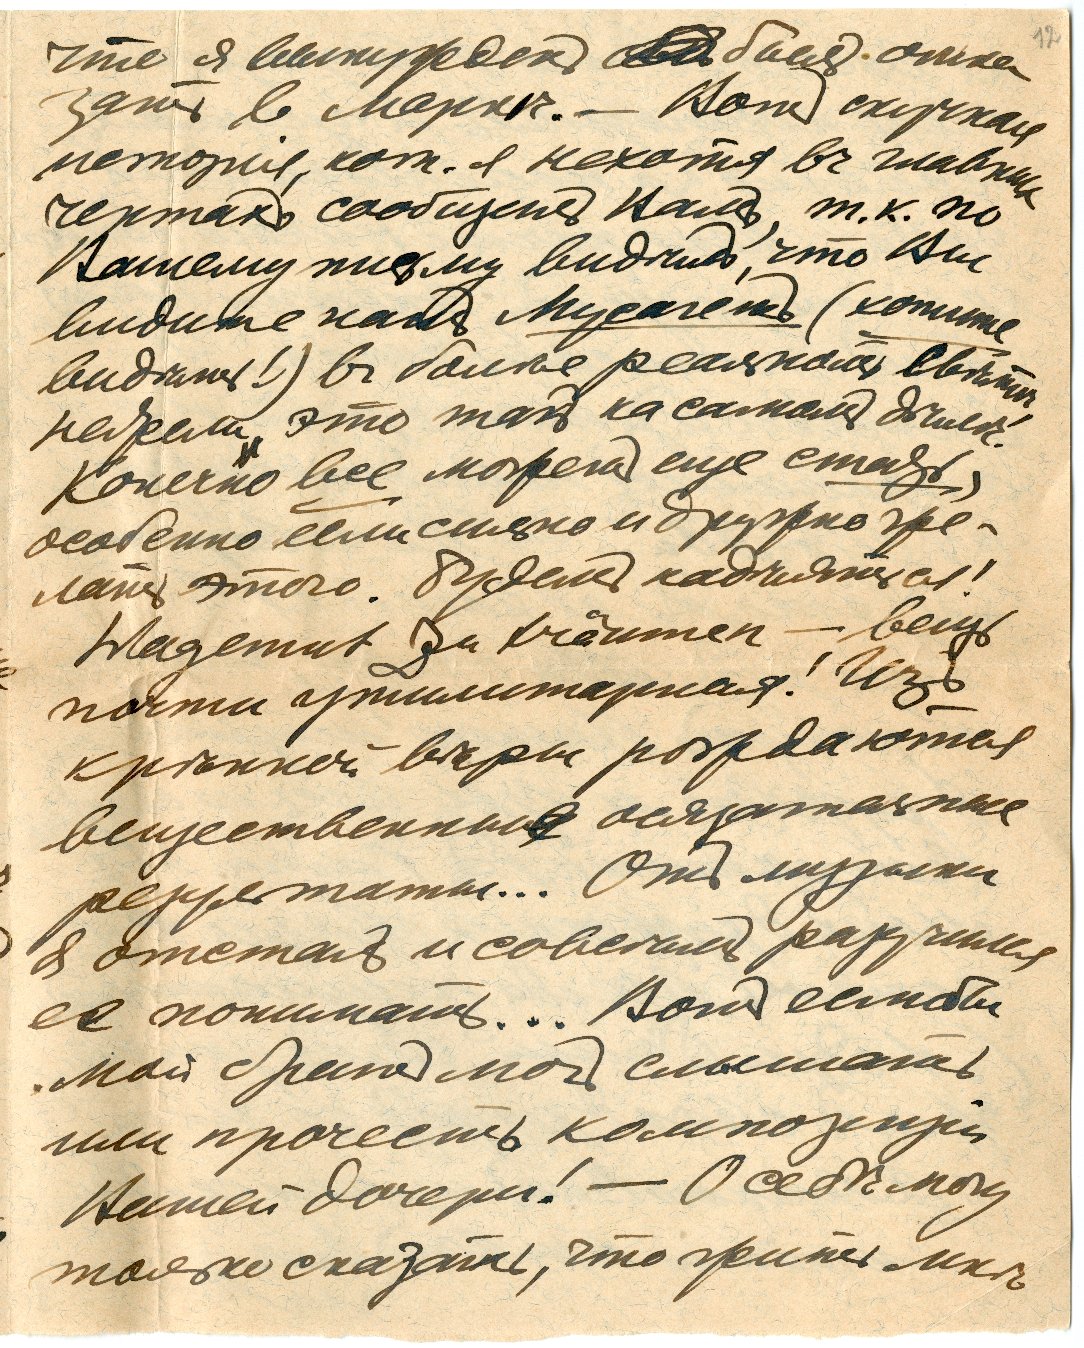 12
что я вынужденъ былъ отка
зать в Мартѣ. — Вотъ скучная
исторія, кот. я нехотя въ главныхъ
чертахъ сообщилъ Вамъ, т. к. по
Вашему письму видѣлъ, что Вы
видите нашъ Мусагетъ (хотите
видѣть!) въ болѣе реальномъ свѣтѣ,
нежели это такъ на самомъ дѣлѣ!
Конечно все можетъ еще стать,
особенно если сильно и дружно же-
лать этого. Будемъ надѣяться!
Wagemut zu träumen — вещь
почти утилитарная! Изъ
крѣпкой вѣры рождаются
вещественные осязательные
результаты... Отъ музыки
я отсталъ и совсѣмъ разучился
ее понимать... Вотъ если бы
мой братъ могъ слышать
или прочесть композиціи
Вашей дочери! — О себѣ могу
только сказать, что жить мнѣ